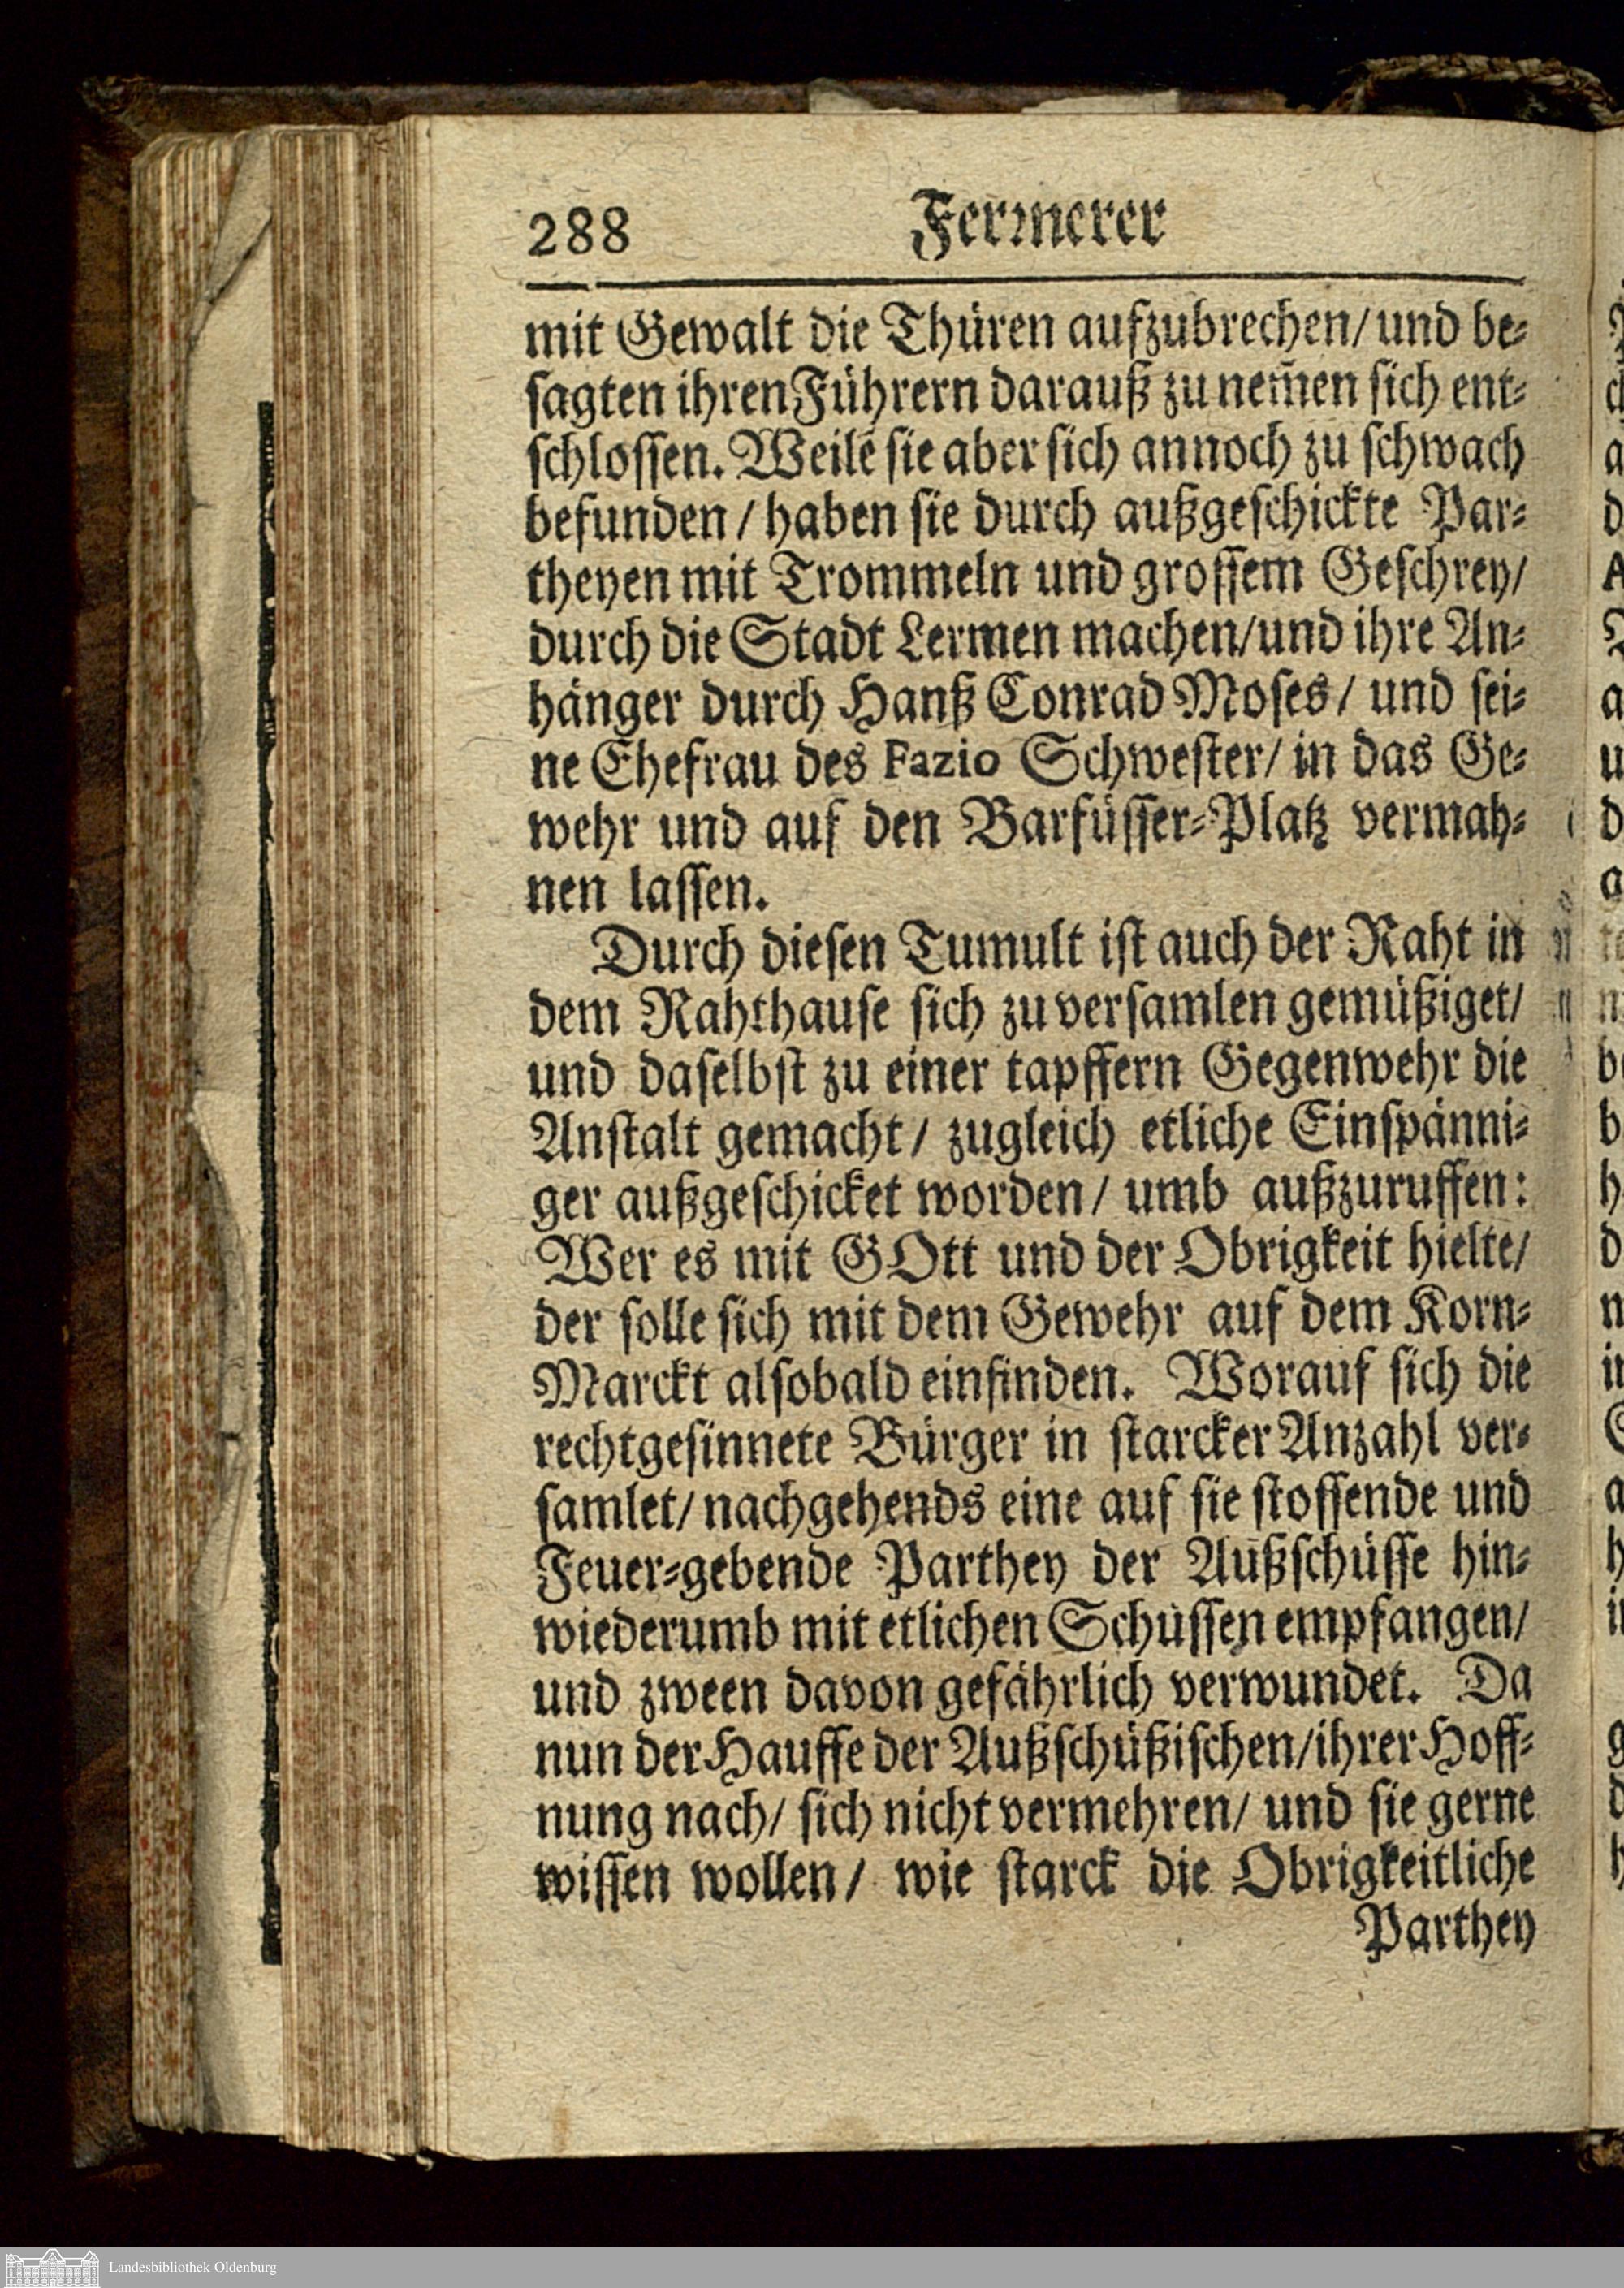 288 Fermerer
mit Gewalt die Thüren aufzubrechen/ und be⸗
sagten ihren Führern darauß zu nem̃en sich ent⸗
schlossen. Weilẽ sie aber sich annoch zu schwach
befunden / haben sie durch außgeschickte Par⸗
theyen mit Trommeln und grossem Geschrey/
durch die Stadt Lermen machen/und ihre An⸗
hänger durch Hanß Conrad Moses/ und sei⸗
ne Ehefrau des Fazio Schwester/ in das Ge⸗
wehr und auf den Barfüsser⸗Platz vermah⸗
nen lassen.
Durch diesen Tumult ist auch der Raht in
dem Rahthause sich zu versamlen gemüßiget/
und daselbst zu einer tapffern Gegenwehr die
Anstalt gemacht/ zugleich etliche Einspänni⸗
ger außgeschicket worden/ umb außzuruffen:
Wer es mit GOtt und der Obrigkeit hielte/
der solle sich mit dem Gewehr auf dem Korn⸗
Marckt alsobald einfinden. Worauf sich die
rechtgesinnete Bürger in starcker Anzahl ver⸗
samlet/ nachgehends eine auf sie stossende und
Feuer⸗gebende Parthey der Außschüsse hin⸗
wiederumb mit etlichen Schüssen empfangen/
und zween davon gefährlich verwundet. Da
nun der Hauffe der Außschüßischen/ihrer Hoff⸗
nung nach/ sich nicht vermehren/ und sie gerne
wissen wollen/ wie starck die Obrigkeitliche
Parthey
Landesbibliothek Oldenburg